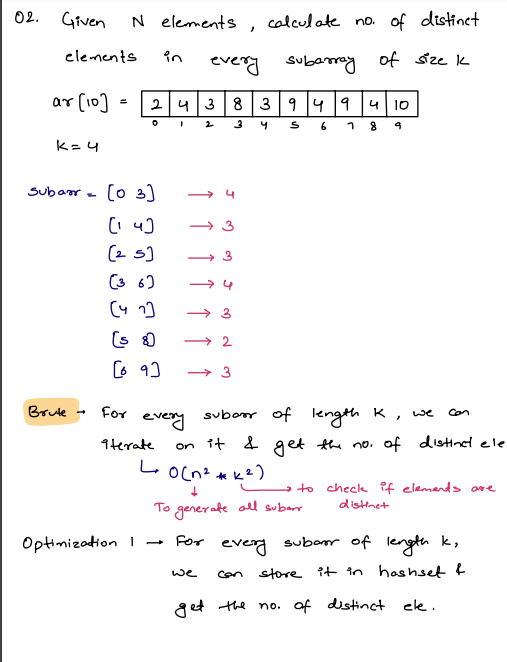 02. Given N elements, calculate no. of distinct
elements in every subarray of size k
ar[10] = 2 4 3 8 3 9 4 9 4 10
0 1 2 3 4 5 6 7 8 9
k=4
Subarr = [0 3] → 4
[1 4] → 3
[2 5] → 3
[3 6] → 4
[4 7] → 3
[5 8] → 2
[6 9] → 3
Brute → For every subarr of length k, we can
iterate on it & get the no. of distinct ele
↳ O(n² * k²)
↓ → to check if elements are
To generate all subarr distinct
Optimization 1 → For every subarr of length k,
we can store it in hashset &
get the no. of distinct ele.